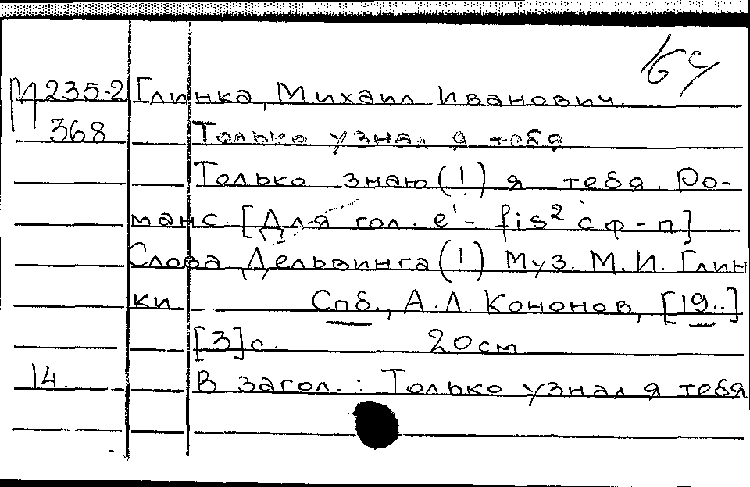 М 235-2 Глинка, Михаил Иванович
368 Только узнал я тебя
Только знаю (!) я тебя. Ро-
манс [Для гол. e¹- fis² с ф-п]
Слова Дельвинга (!) Муз. М.И. Глин
ки Спб., А.Л. Кононов, [19..]
[3] с. 20 см
14 В загол.: Только узнал я тебя